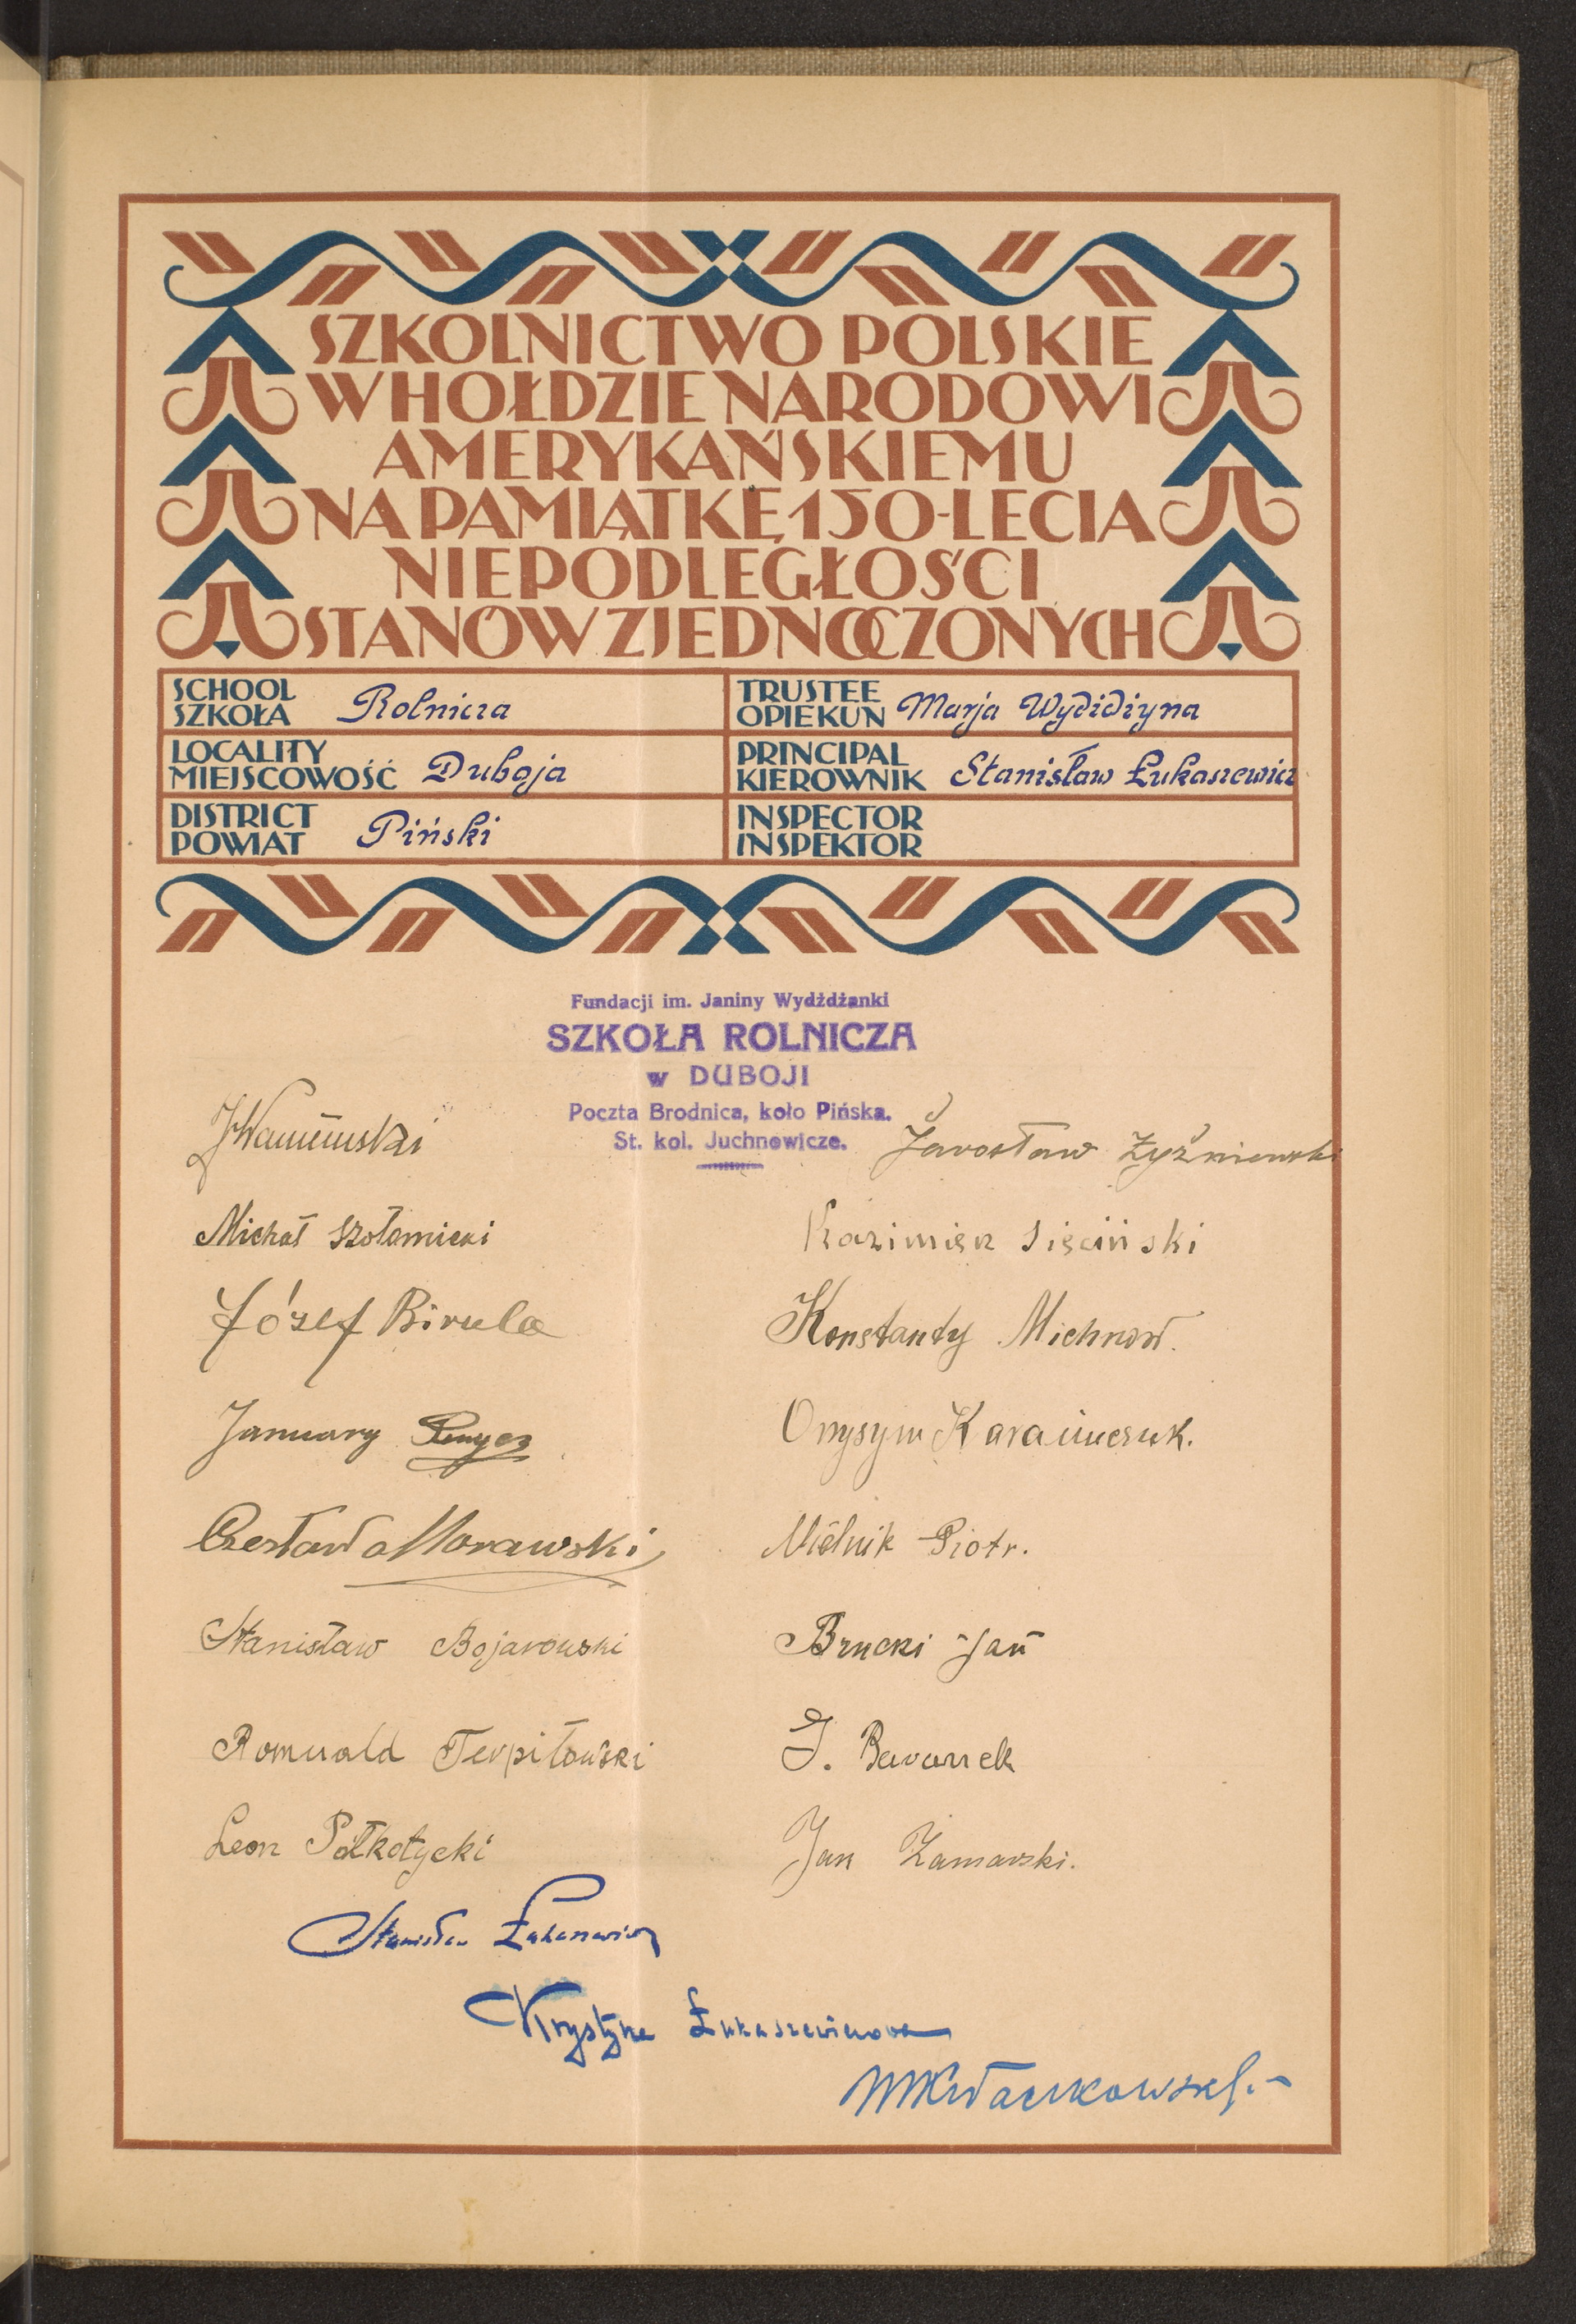 SZKOLNICTWO POLSKIE
W HOŁDZIE NARODOWI
AMERYKAŃSKIEMU
NA PAMIĄTKĘ 150-LECIA
NIEPODLEGŁOŚCI
STANÓW ZJEDNOCZONYCH
SCHOOL
SZKOŁA Rolnicza
TRUSTEE
OPIEKUN Marja Wydżdżyna
LOCALITY
MIEJSCOWOŚĆ Duboja
PRINCIPAL
KIEROWNIK Stanisław Łukaszewicz
DISTRICT
POWIAT Piński
INSPECTOR
INSPEKTOR
Fundacji im. Janiny Wydżdżanki
SZKOŁA ROLNICZA
w DUBOJI
Poczta Brodnica, koło Pińska.
St. kol. Juchnowicze.
Jarosław Żyźniewski
Michał Szołomicki
Kazimierz Sięciński
Józef Birula
Konstanty Michnow.
January
Onysym
Czesław Morawski
Mielnik Piotr.
Stanisław Bojarowski
Brucki Jan
Romuald Terpiłowski
J.
Leon Półkotycki
Jan Zamarski.
Stanisław Łukaszewicz
Krystyna Łukaszewiczowa